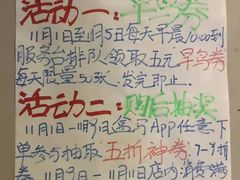 活动一：早鸟券
11月1日至11月5日每天早晨10:00到
服务台排队领取五元早鸟券
每天限量50张，发完即止.
活动二：购后抽奖
11月1日—11月9日盒马App任意下
单参与抽取五折神券，7~9折
券 11月8日—11月11日店内消费满